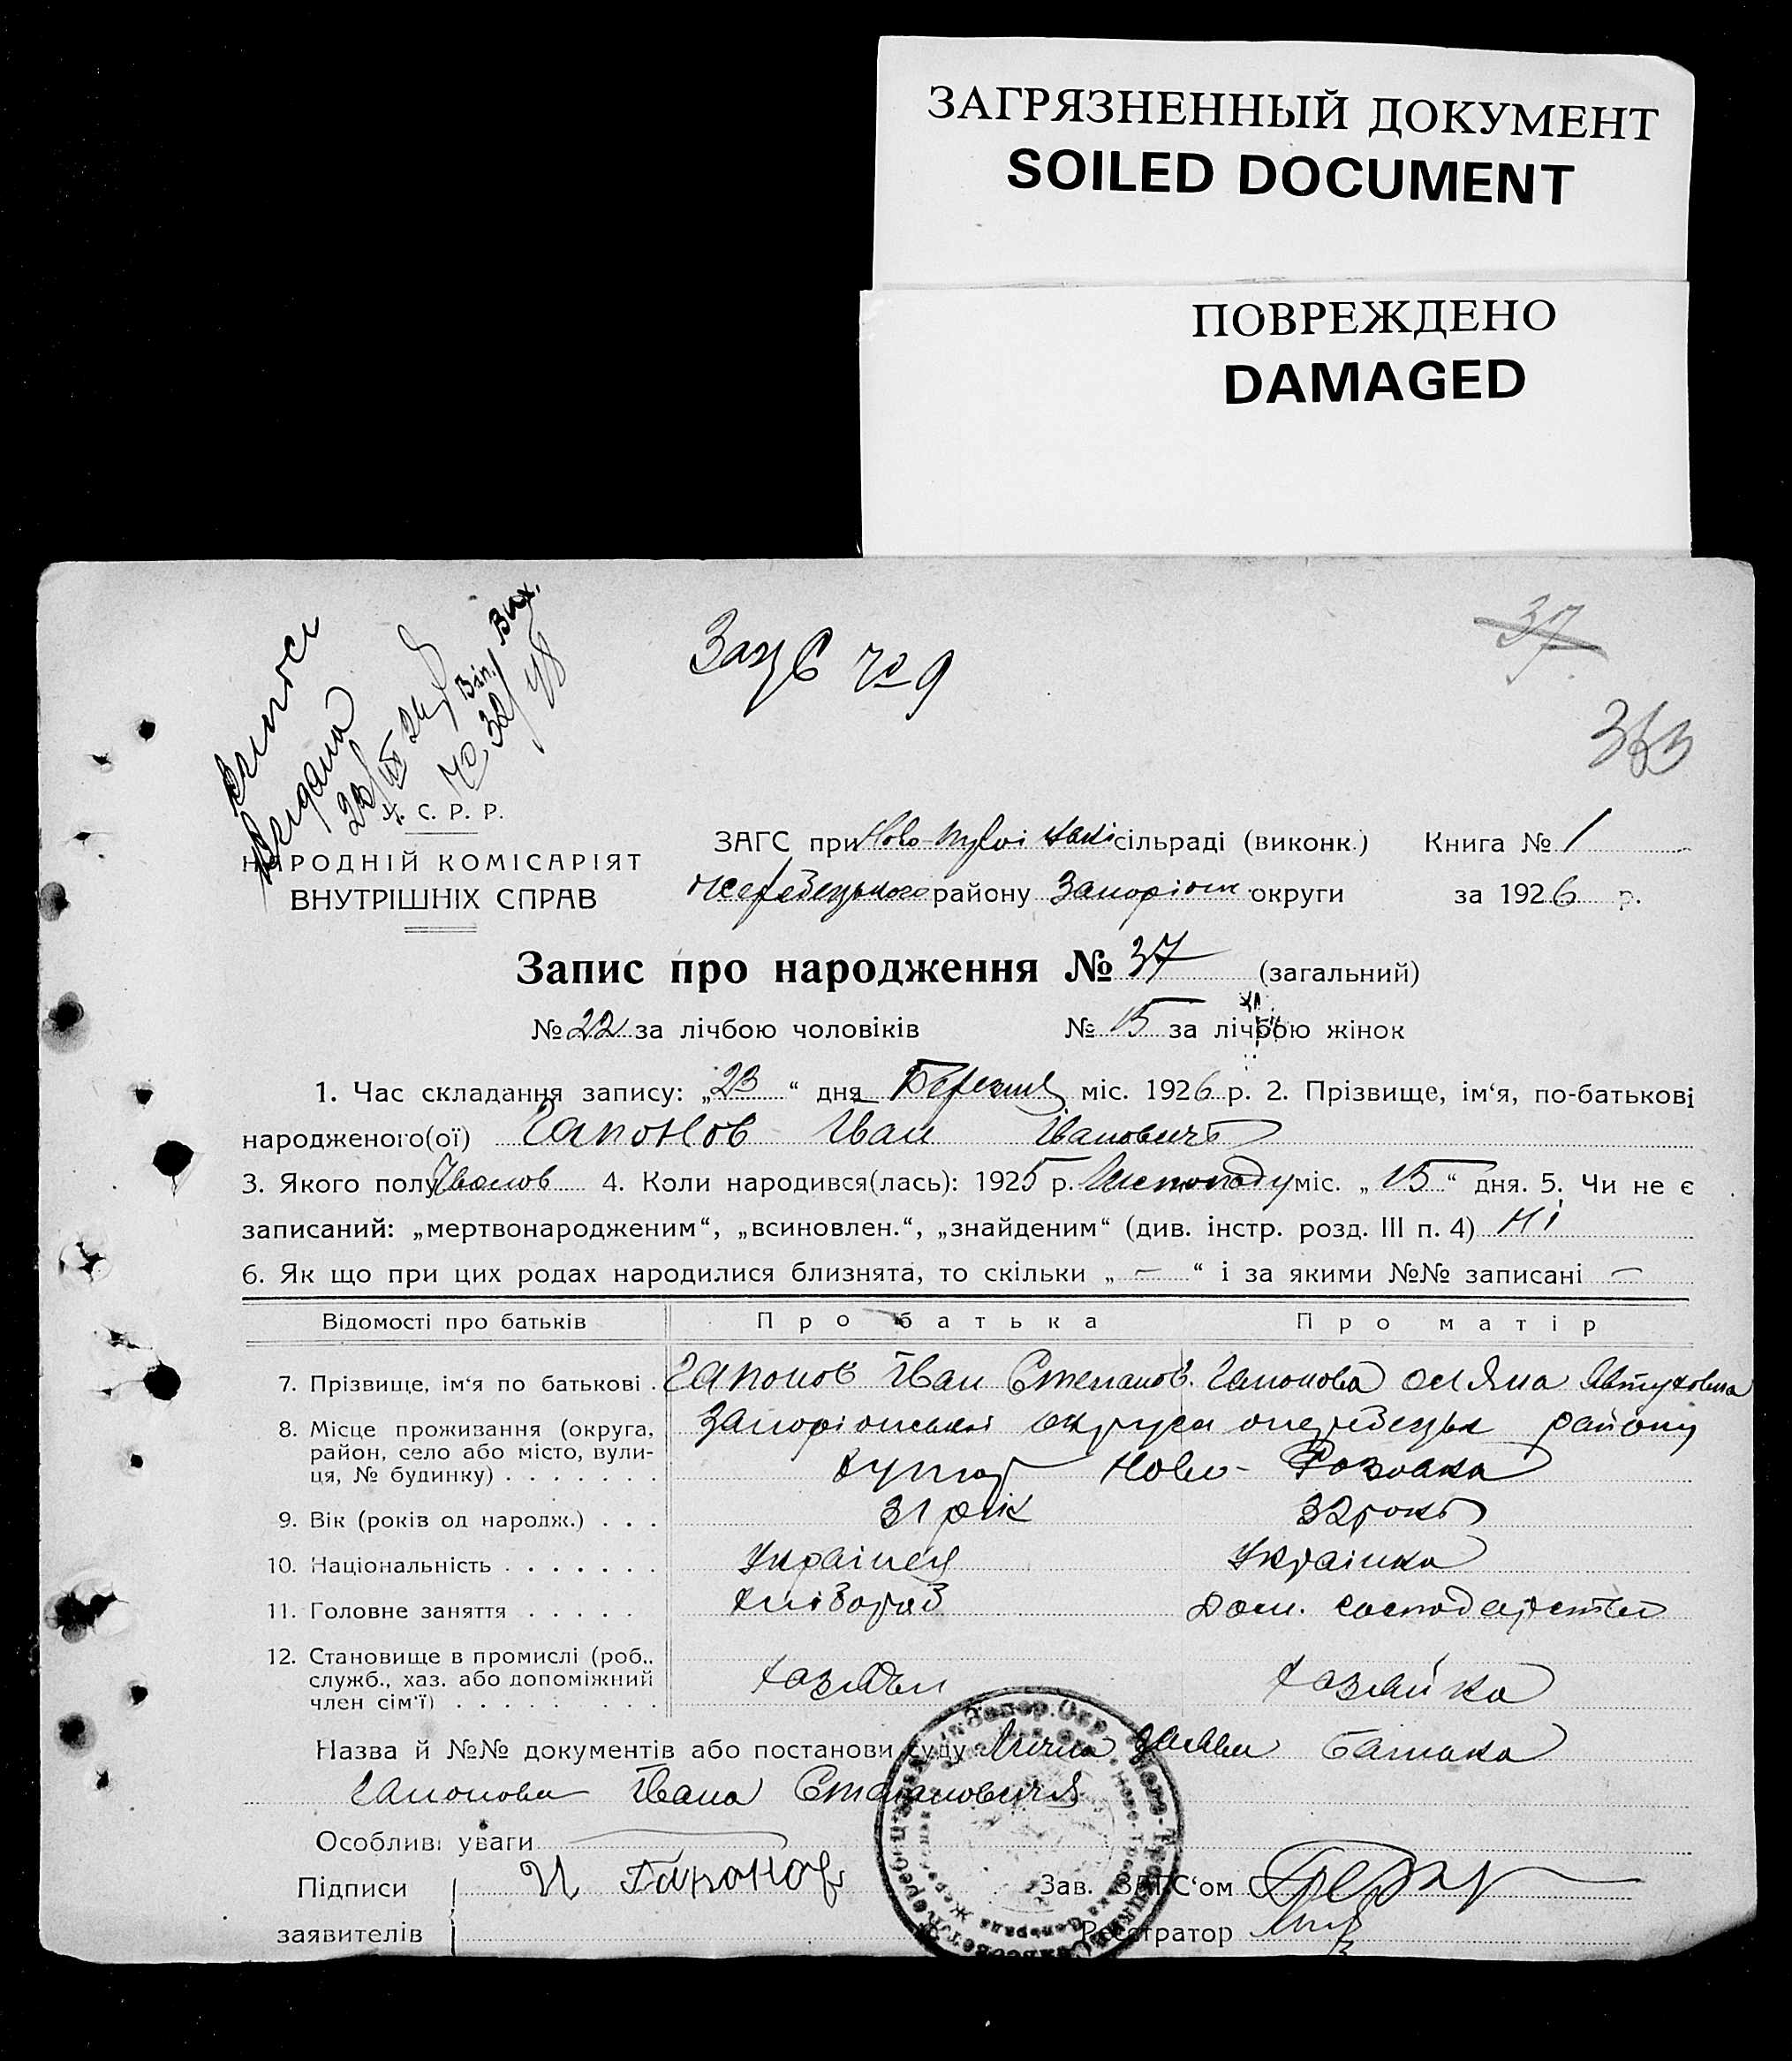 ЗАГРЯЗНЕННЫЙ ДОКУМЕНТ
SOILED DOCUMENT
ПОВРЕЖДЕНО
DAMAGED
37
№ 9
У. С. Р. Р.
НАРОДНІЙ КОМІСАРІЯТ
ВНУТРІШНІХ СПРАВ
ЗАГС при сільраді (виконк.) Книга № 1
району Запоріж округи за 1926 р.
Запис про народження № 37 (загальний)
№ 22 за лічбою чоловіків № 15 за лічбою жінок
1. Час складання запису: „23“ дня Березня міс. 1926 р. 2. Прізвище, ім‘я, по-батькові
народженого(ої) Гапонов Іван Іванович
3. Якого полу Чолов 4. Коли народився(лась): 1925 р. Листопаду міс. „15“ дня. 5. Чи не є
записаний: „мертвонародженим“, „всиновлен.“, „знайденим“ (див. інстр. розд. III п. 4) Ні
6. Як що при цих родах народилися близнята, то скільки „ — “ і за якими №№ записані —
Відомості про батьків Про батька Про матір
7. Прізвище, ім‘я по батькові . Гапонов Іван Степанов. Гапонова
8. Місце проживання (округа, район, село або місто, вулиця, № будинку) . . . . . . . округи району
Хутор Ново-Розовка
9. Вік (років од народж.) . . . 31 рік 32 роки
10. Національність . . . . . . . Українец Українка
11. Головне заняття . . . . . Хлібороб Дом. господарство
12. Становище в промислі (роб., служб., хаз. або допоміжний член сім‘ї) . . . . . . . . . Хазяїн Хазяйка
Назва й №№ документів або постанови суду Лична заява батька
Гапонова Івана Степановича
Особливі уваги
Підписи И Гапонов Зав. ЗАГС‘ом
заявителів Реєстратор